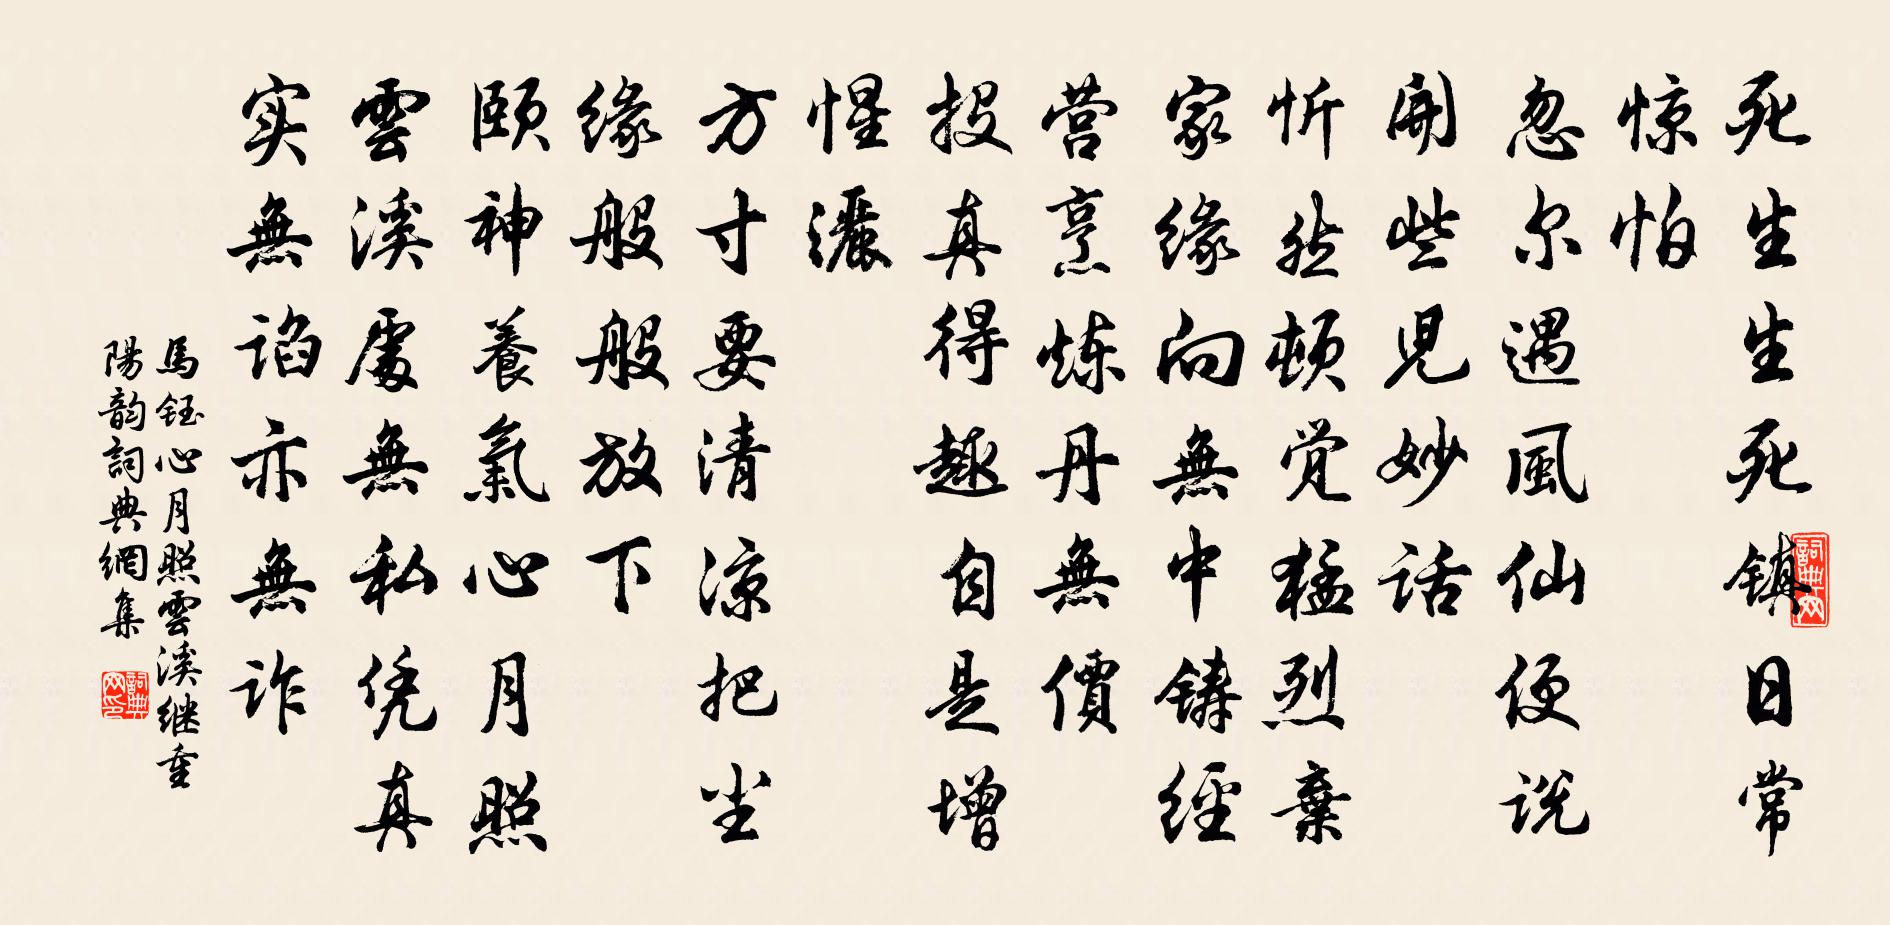 死生生死镇日常
惊怕
忽尔遇風仙便说
開些兒妙话
忻然顿觉猛烈棄
家缘向無中鑄經
营烹炼丹無價
投真得趣自是增
惺灑
方寸要清凉把尘
缘般般放下
頤神養氣心月照
雲溪處無私凭真
实無谄亦無诈
馬钰心月照雲溪继重
陽韵詞典網集
詞典网
詞典网印